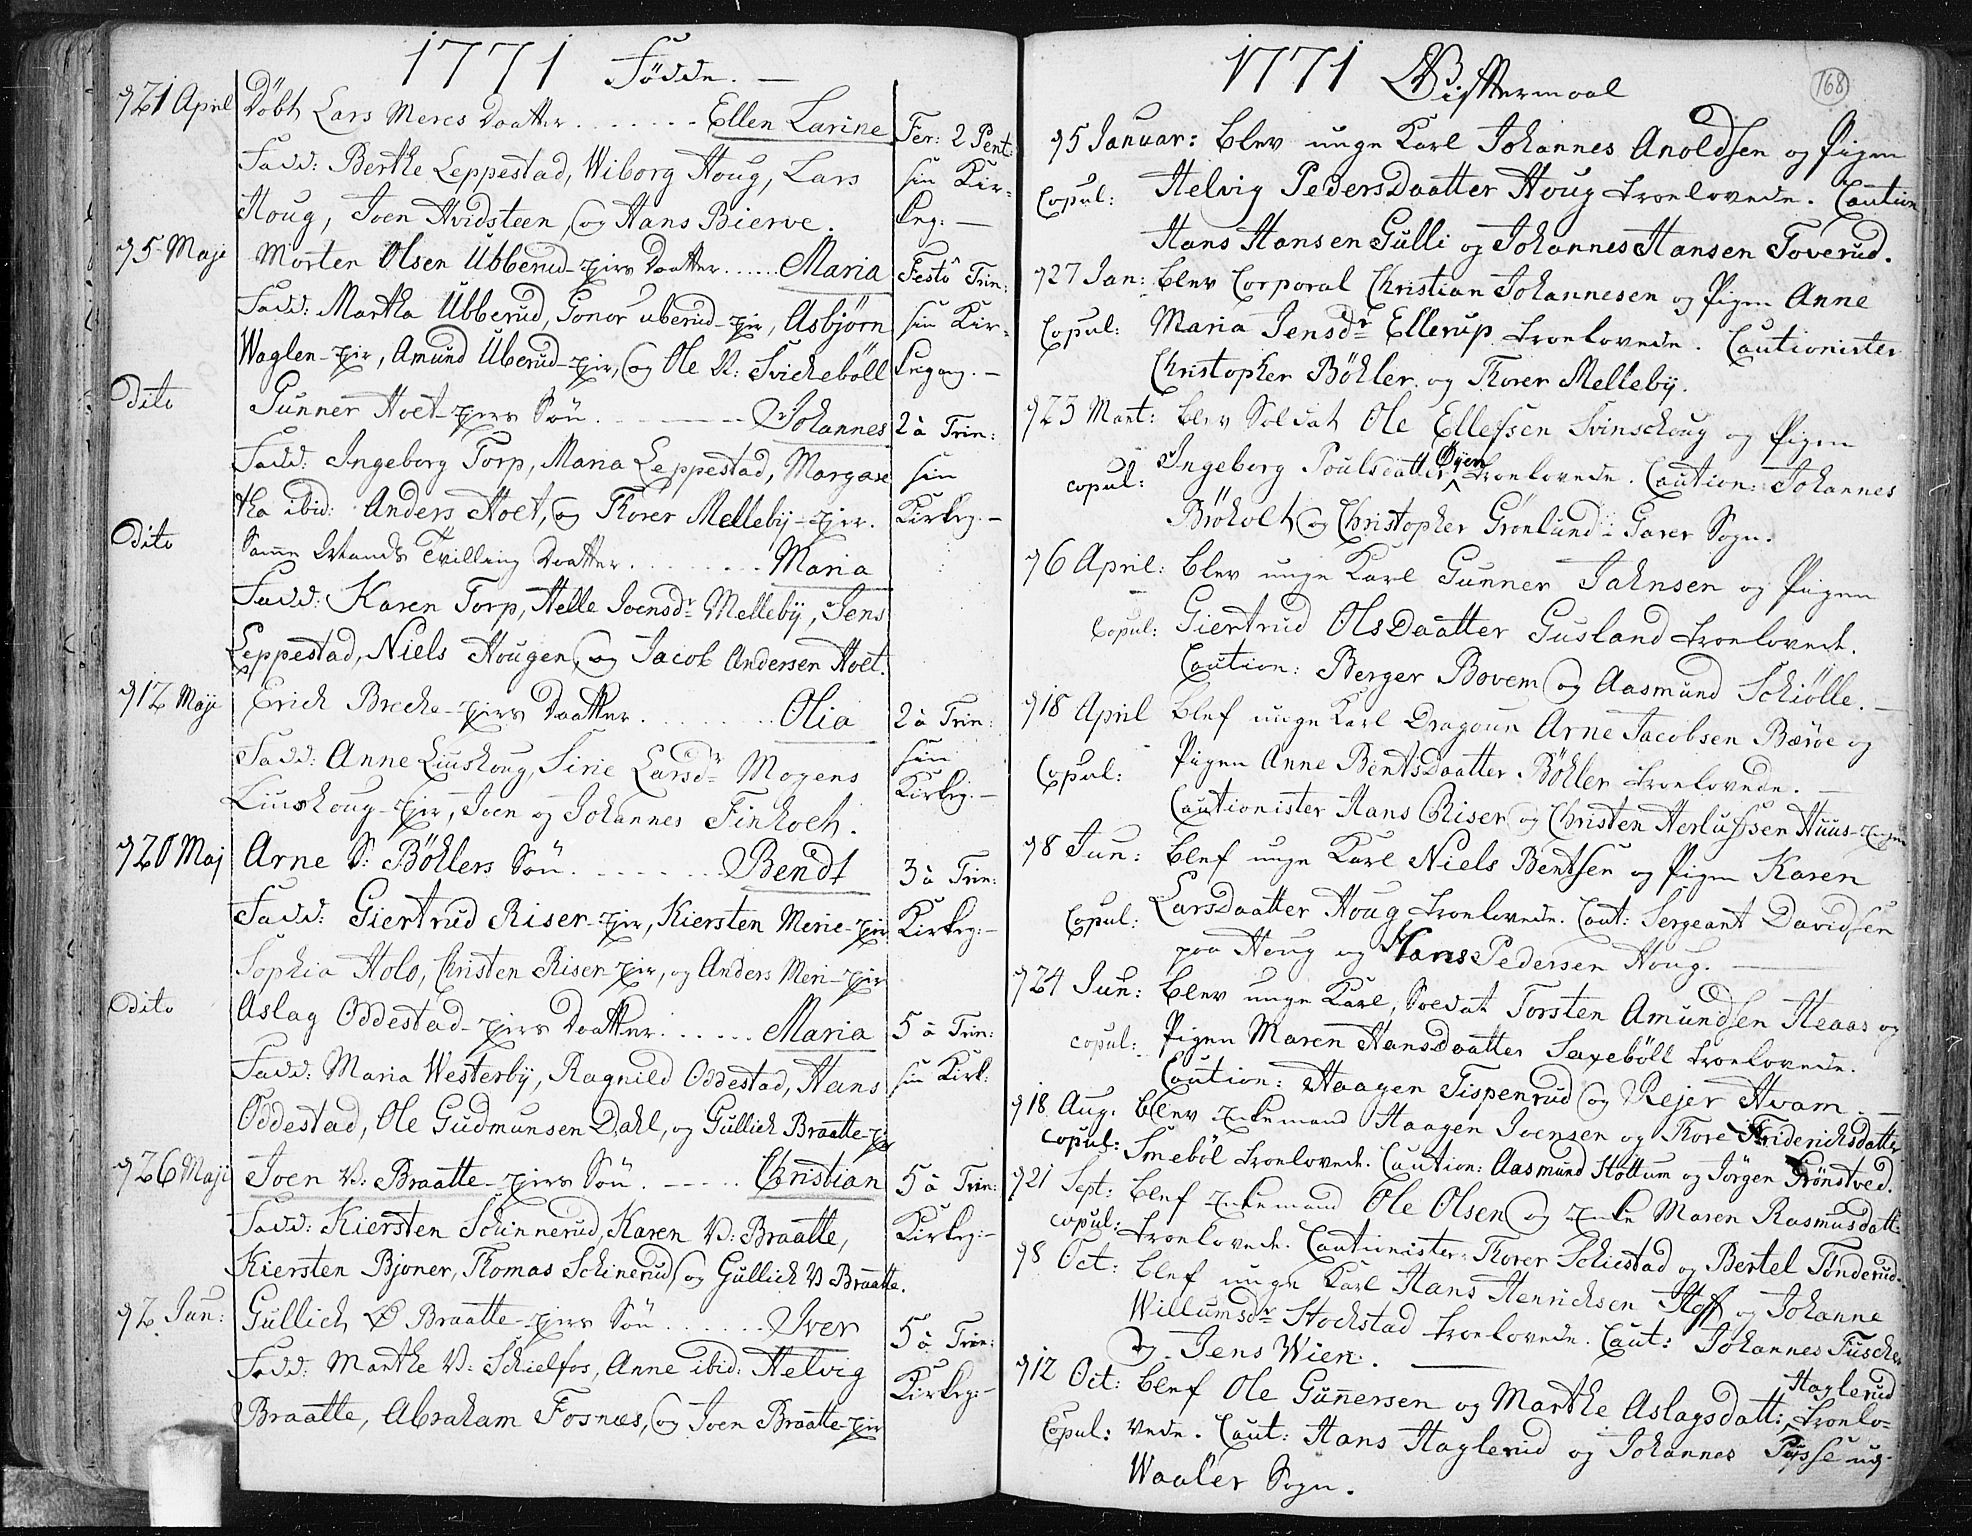 1771 Födde. —
d 21 April Döbt Lars Meres Daatter . . . . . . . Ellen Larine
Fer: 2 Pent:
Fadd: Berthe Leppestad, Wiborg Houg, Lars
sin Kir-
Houg, Joen Hvidsteen, og Hans Bierve.
keg: —
d 5 Maje Morten Olsen Ubberud-ejers Daatter . . . . . . Maria
Festo Trin:
Fadd: Martha Ubberud, Gonor uberud-ejer, Asbjørn
sin Kir-
Waglen-ejer, Amund Uberud-ejer, og Ole N: Svichebøll
kegang. —
Dito Gunner Hoet-ejers Søn . . . . . . . Johannes
2 à Trin:
Fadd: Ingeborg Torp, Maria Leppestad, Margare
sin
tha ibid: Anders Hoet, og Thorer Mellebÿ-ejer.
Kirkeg. —
Dito Samme Mands Tvilling Daatter . . . . . . . . Maria
Fadd: Karen Torp, Helle Joensdr Mellebÿ, Jens
Leppestad, Niels Hougen, og Jacob Andersen Hoet.
d 12 Maje Erich Breche-ejers Daatter . . . . . . . Olia
2 à Trin:
Fadd: Anne Liushoug, Sirie Larsdr Mogens
sin
Liushoug-ejer, Joen og Johannes Finholt.
Kirkeg. —
d 20 Maj Arne S: Bøhlers Søn . . . . . . . Bendt
3 à Trin:
Fadd: Giertrud Riser-ejer, Kiersten Merie-ejer
Kirkeg: —
Sophia Holo, Christen Riser-ejer, og Anders Meri-ejer
Dito Aslag Oddestad-ejers Daatter . . . . . . Maria
5 à Trin:
Fadd: Maria Westerbÿ, Ragnild Oddestad, Hans
sin Kirk:
Oddestad, Ole Gudmunsen Dahl, og Gullich Braatte-ejer
d 26 Maji Joen V: Braatte-ejers Søn . . . . . . Christian
5 à Trin:
Fadd: Kiersten Schinnerud, Karen V: Braatte,
Kirkeg: —
Kiersten Bjoner, Thomas Schinerud, og Gullich V Braatte.
d 2 Jun: Gullich Ø Braatte-ejers Søn . . . . . . . Iver
5 à Trin:
Fadd: Marthe V: Schielfos, Anne ibid: Helvig
Kirkeg: —
Braatte, Abraham Fosnæs, og Joen Braatte-ejer
1771 Vifftermaal
168
d 5 Januar: Blev unge Karl Johannes Anoldsen og Pigen
Copul: Helvig PedersDaatter Houg trolovede. Caution
Hans Hansen Gulli og Johannes Hansen Toverud.
d 27 Jan: Blev Corporal Christian Johannesen og Pigen Anne
Copul: Maria Jensdr Ellerup trolovede. Cautionister
Christopher Bøhler og Thorer Mellebÿ.
d 23 Mart: Blev Soldat Ole Ellefsen Svinschoug og Pigen
copul: Ingeborg Poulsdatter Øÿen trolovede. Caution: Johannes
Brøholt og Christopher Grønlund i Garer Sogn.
d 6 April: Blev unge Karl Gunner Jahnsen og Pigen
Copul: Giertrud OlsDaatter Gusland trolovede.
Caution: Berger Bovem og Aasmund Schiølle. —
d 18 April Blef unge Karl Dragoun Arne Jacobsen Bærøe og
Copul: Pigen Anne BentsDaatter Bøhler trolovede. —
Cautionister Hans Riser og Christen Herlufsen Huus-ejer
d 8 Jun: Blef unge Karl Niels Bentsen og Pigen Karen
Copul: LarsDaatter Houg trolovede. Caut: Sergeant Davidsen
paa Houg og Hans Pedersen Houg. —
d 24 Jun: Blev unge Karl, Soldat Torsten Amundsen Heaas og
copul: Pigen Maren HansDaatter Saxebøll trolovede.
Caution: Haagen Tispenrud og Rejer Hvam. —
d 18 Aug. Blev Enkemand Haagen Joensen og Thore Friderichsdatter
copul: Smebøl trolovede. Caution: Aasmund Hottum og Jørgen Grønstved.
d 21 Sept: Blef Enkemand Ole Olsen og Enke Maren Rasmusdatt:
copul: trolovede. Cautionister: Thorer Schiestad og Bertel Tønderud.
d 8 Oct: Blef unge Karl Hans Henrichsen Hoff og Johanne
Willumsdr Stochstad trolovede. Caut: Johannes Fusche
og Jens Wien. —
d 12 Oct: Blef Ole Gunnersen og Marthe Aslagsdatt: Haglerud trolo-
Copul: vede. Caut: Hans Haglerud og Johannes
Waaler Sogn.